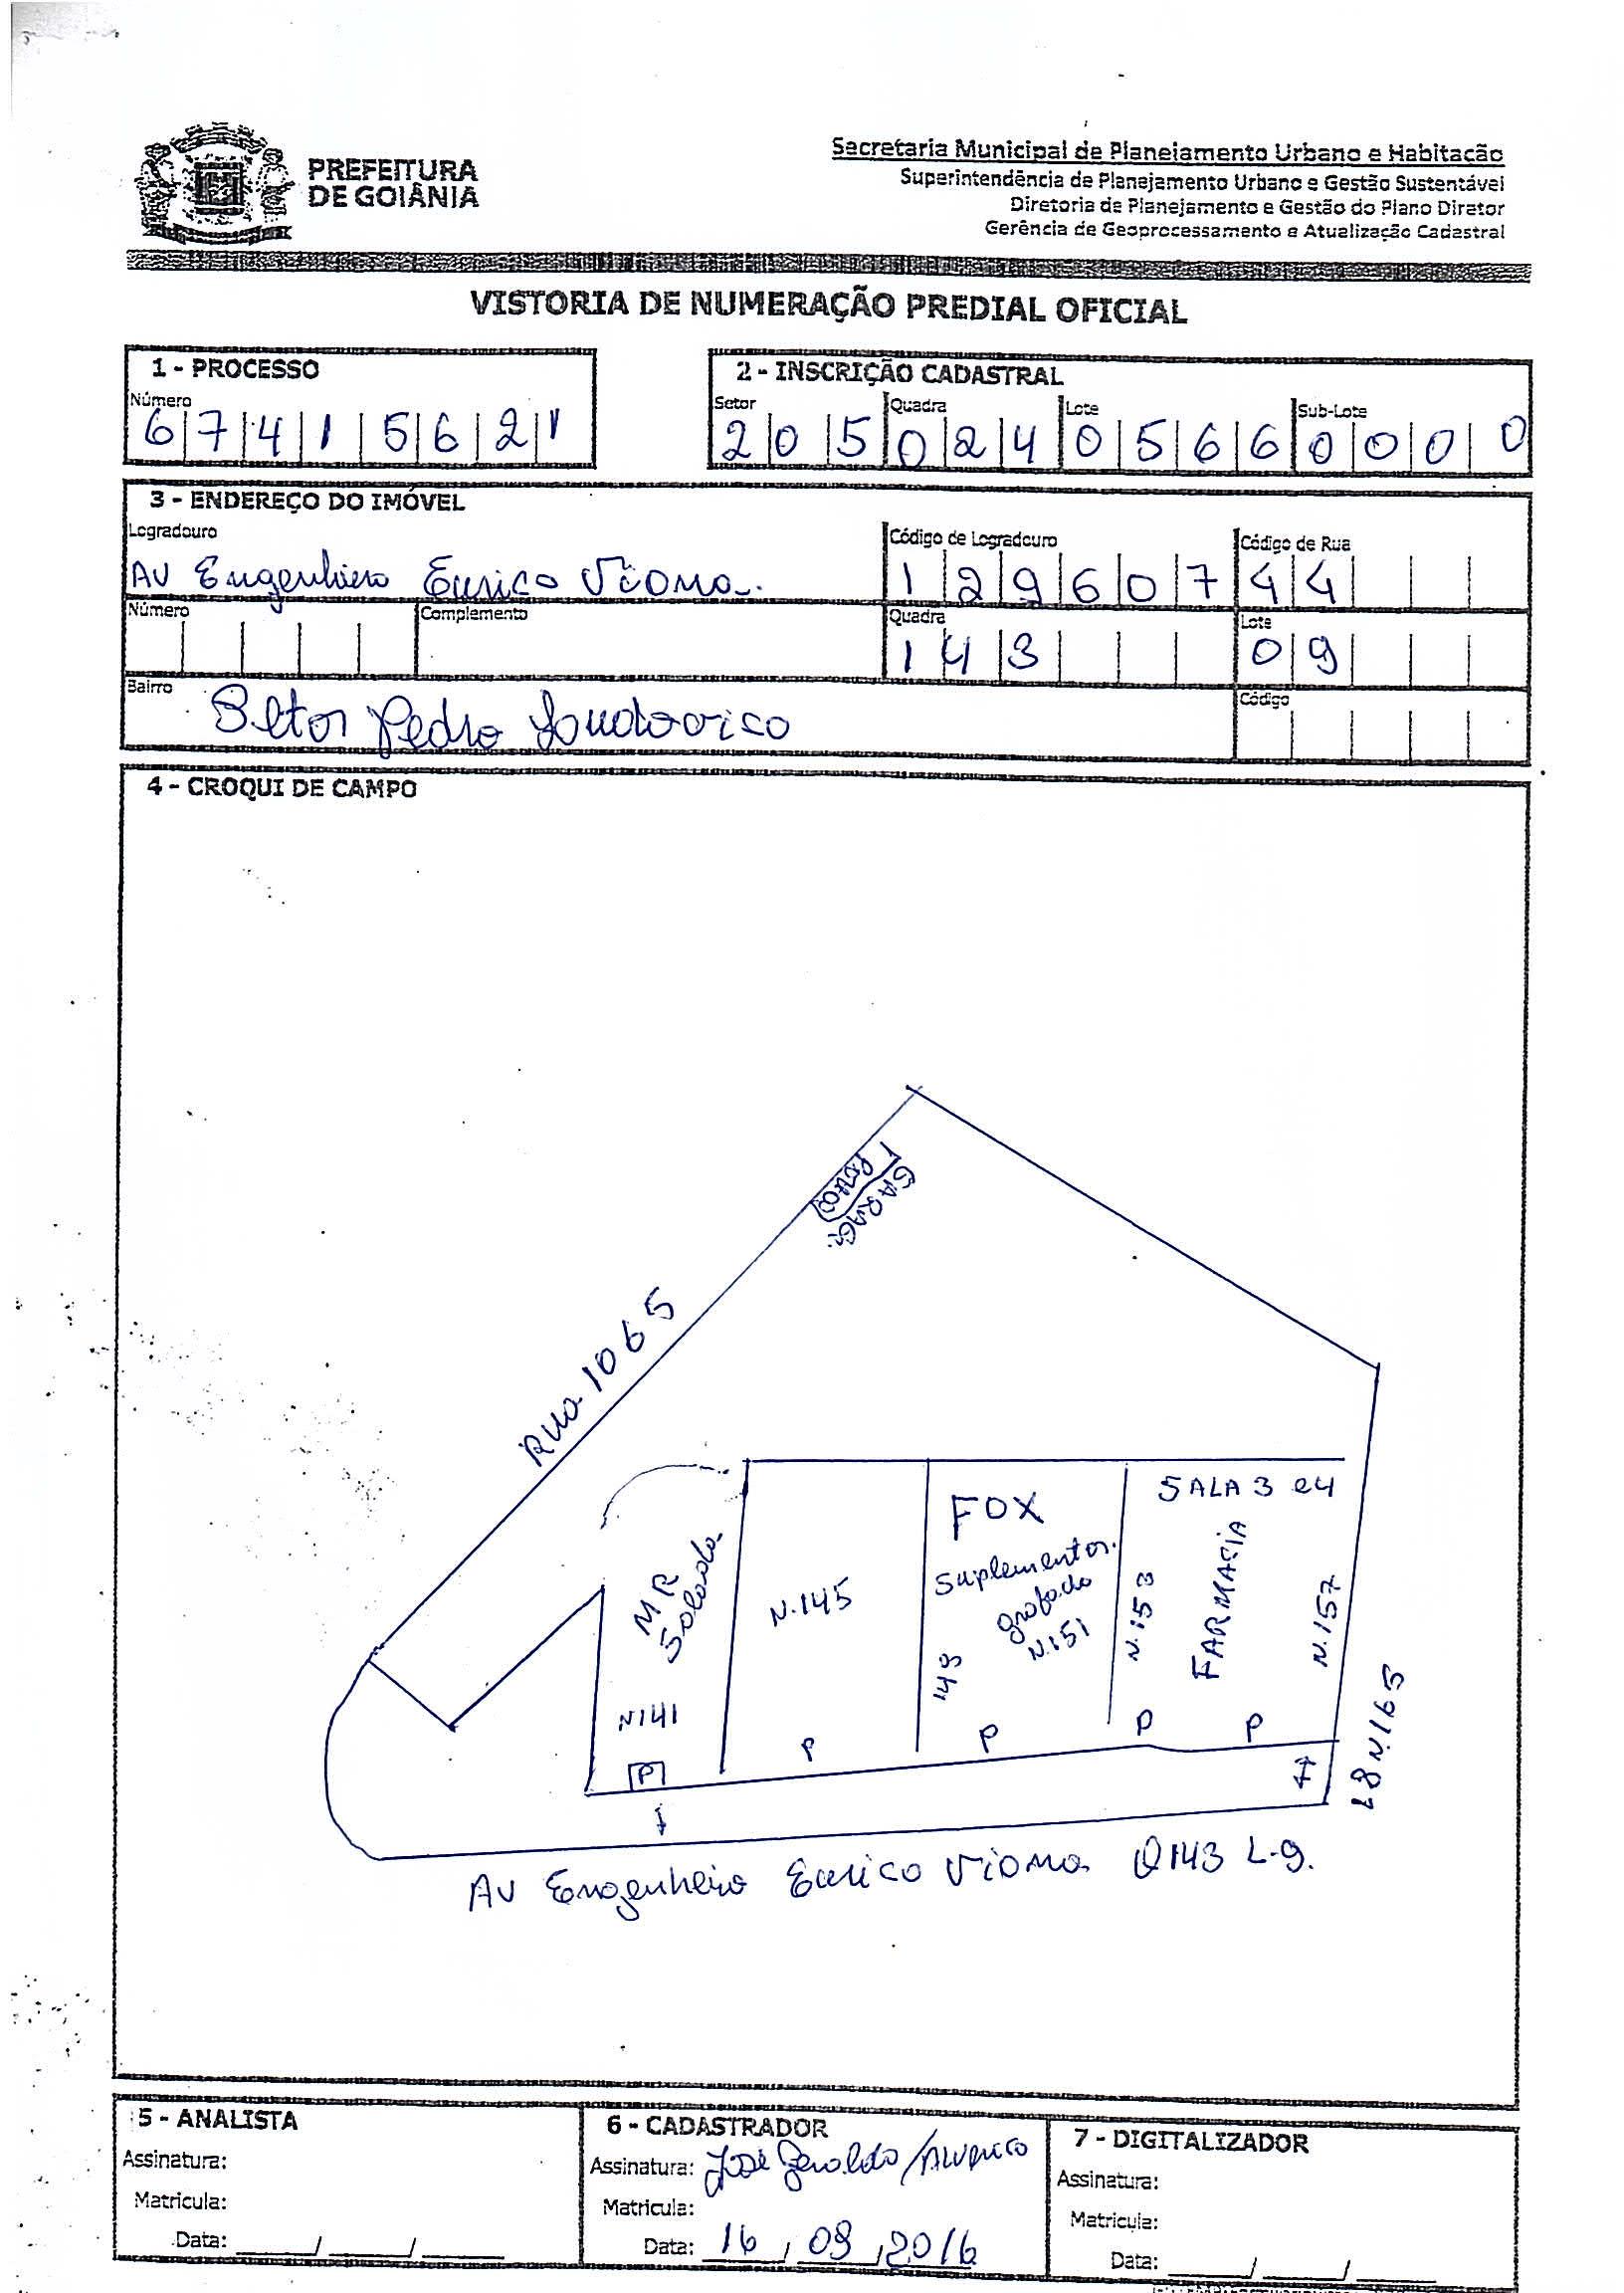 PREFEITURA
DE GOIÂNIA
Secretaria Municipal de Planejamento Urbano e Habitação
Superintendência de Planejamento Urbano e Gestão Sustentável
Diretoria de Planejamento e Gestão do Plano Diretor
Gerência de Geoprocessamento e Atualização Cadastral
VISTORIA DE NUMERAÇÃO PREDIAL OFICIAL
1 - PROCESSO
Número
6 7 4 1 5 6 2 1
2 - INSCRIÇÃO CADASTRAL
Setor Quadra Lote Sub-Lote
2 0 5 0 2 4 0 5 6 6 0 0 0 0
3 - ENDEREÇO DO IMÓVEL
Logradouro Código de Logradouro Código de Rua
AV Engenheiro Eurico Viana. 1 2 9 6 0 7 4 4
Número Complemento Quadra Lote
1 4 3 0 9
Bairro Código
Setor Pedro Loudovico
4 - CROQUI DE CAMPO
Portão
GARAG.
RUA 1065
SALA 3 e 4
FOX
Suplementos.
grafado
N.151
MR
Salada
N.145
N.153
FARMASIA
N.157
149
N141
P
P
P
P
P
L8 N.165
AV Engenheiro Eurico Viana Q143 L-9.
5 - ANALISTA
Assinatura:
Matricula:
Data: ____/____/____
6 - CADASTRADOR
Assinatura: José Geraldo /
Matricula:
Data: 16 / 09 / 2016
7 - DIGITALIZADOR
Assinatura:
Matricula:
Data: ____/____/____